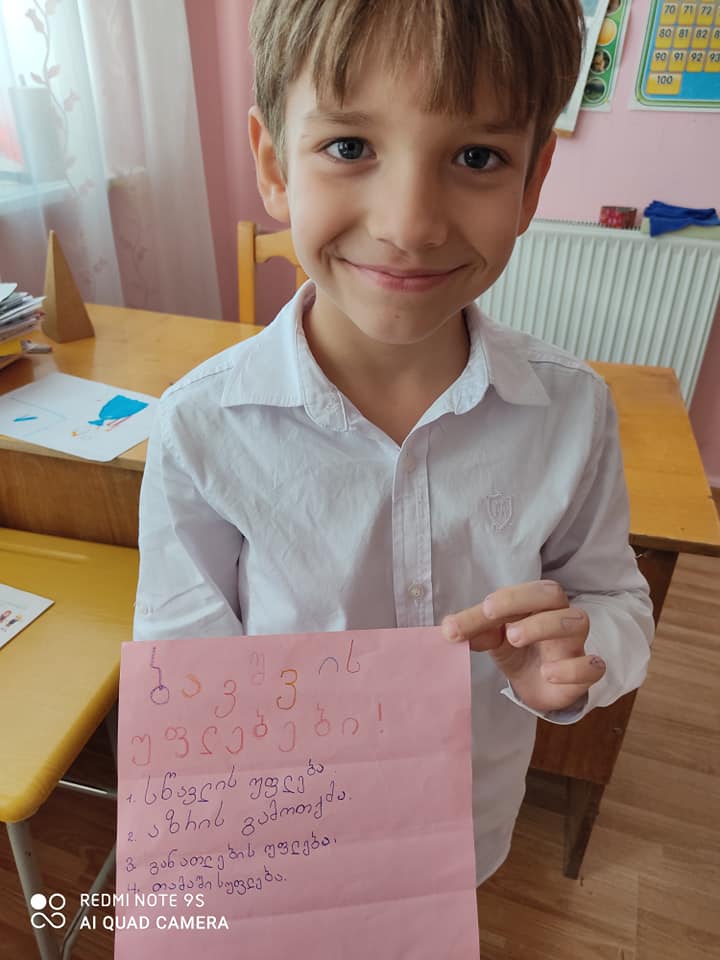 70 71 72
80 81 82 83
90 91 92 93
100
ბავშვის
უფლებები!
1. სწავლის უფლება.
2. აზრის გამოთქმა.
3. განათლების უფლება.
4. თამაშის უფლება.
REDMI NOTE 9S
AI QUAD CAMERA